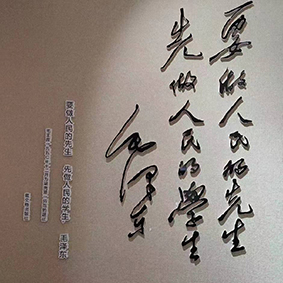 要做人民的先生
先做人民的学生
毛泽东
要做人民的先生 先做人民的学生 毛泽东